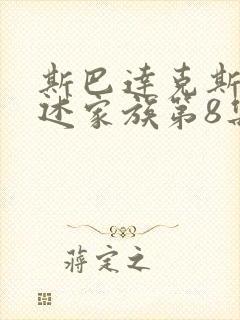 斯巴达克斯
述家族第8集
蒋定之